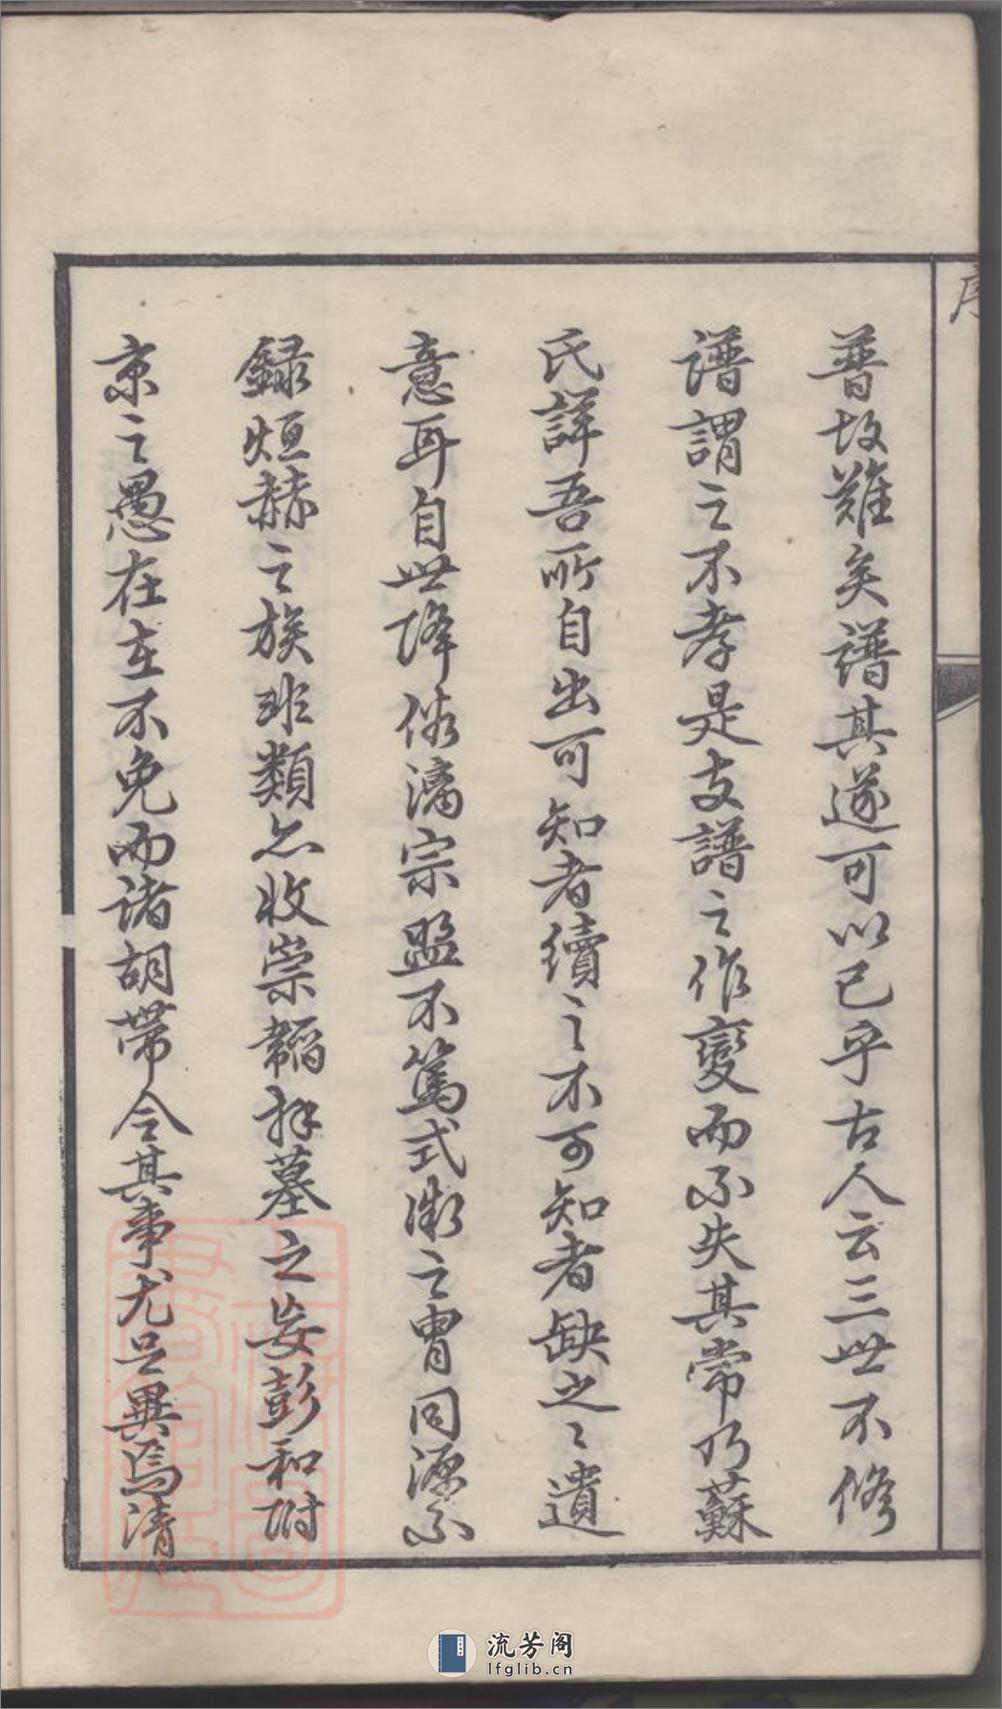 序
普故難矣譜其遂可以已乎古人云三世不修
譜謂之不孝是支譜之作變而不失其常乃蘇
氏詳吾所自出可知者續之不可知者缺之之遺
意耳自世降俗漓宗盟不篤式微之胄同源不
錄烜赫之族非類亦收崇韜拜墓之妄彭和附
京之愚在在不免而諸胡帶令其事尤足異焉清
流芳阁
lfglib.cn